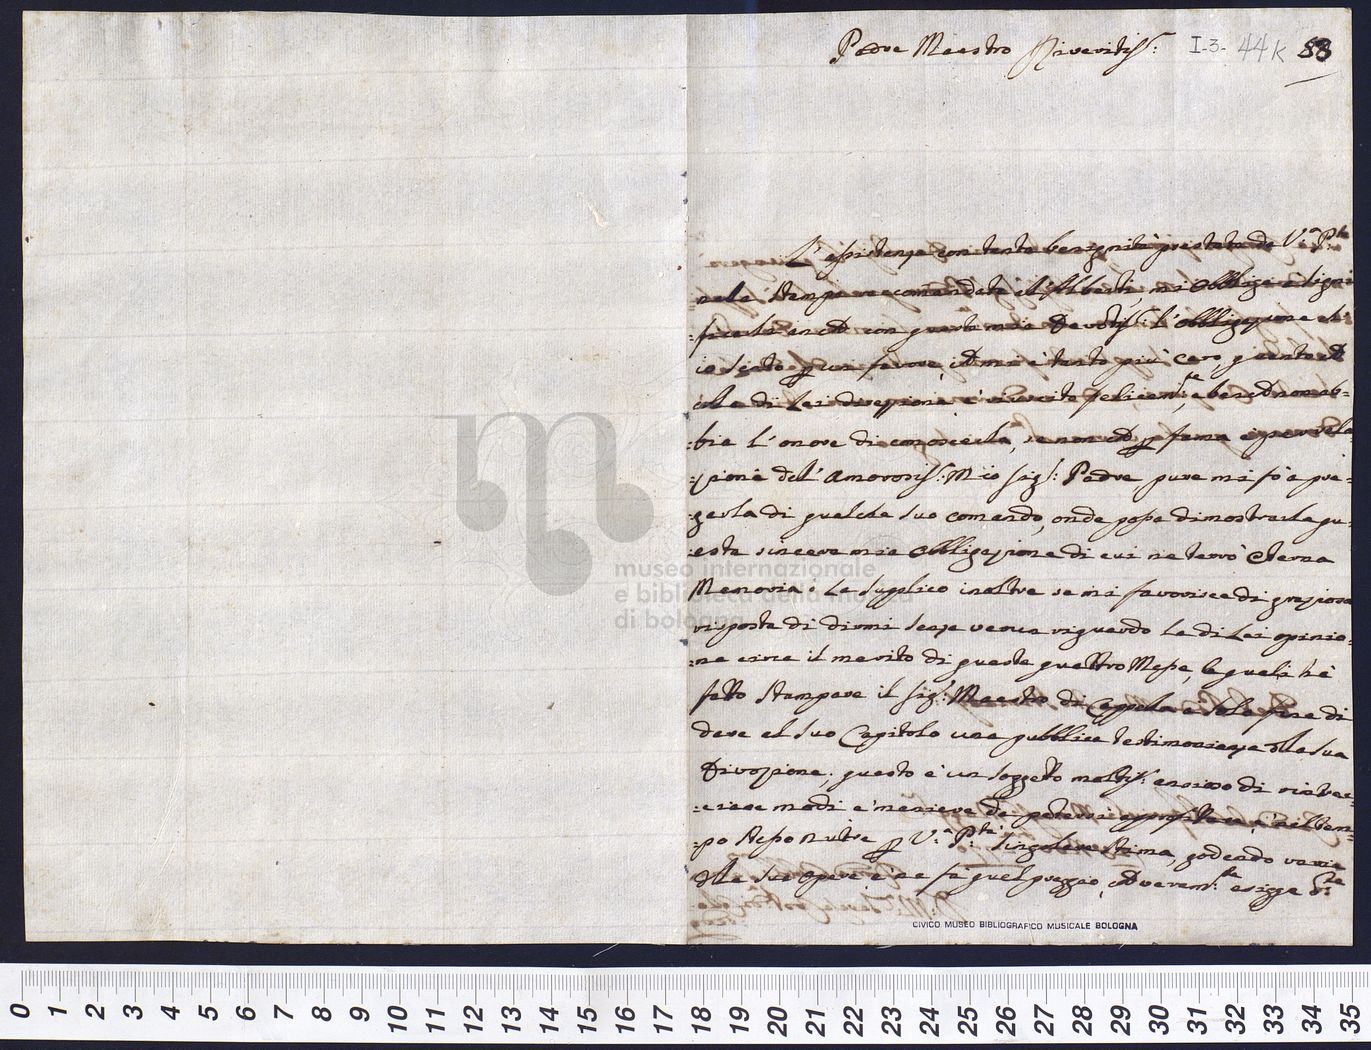 Padre Maestro Riveritiss:
I-3- 44K 53
L'assistenza con tanta benignità prestata da V.ª P.tà
nela Stampa racomandata al mi obbliga à signi
ficarla anco con questa mia Devotiss: l'obbligazione ch'
io sento p un favore, ch mi è tanto più caro, quanto ch
cola di Lei direzione è riuscito felicem.te, e benchè non ab-
bia l'onore di conoscerla, se non ch p fama e per rela
zione del' Amorosiss: Mio Sig.r Padre, pure mi fò à pre-
garla di qualche suo comando, onde possa dimostrarle qu-
esta sincera mia obbligazione di cui ne terrò eterna
Memoria: La supplico inoltre se mi favorisce di graziosa
risposta di dirmi senza verun riguardo la di Lei opinio-
ne circa il merito di queste quattro Messe, le quali hà
fatto stampare il Sig.r Maestro di Cappella e di
dare al suo Capitolo una pubblica testimonianza dela sua
Divozione; questo è un soggetto
modi e maniere da potersi approfittare, e nel tem-
po stesso nutre p V.ª P.tà singolare stima, godendo varie
dele sue opere e ne fà quel preggio, ch veram.te esigge
museo internazionale
e biblioteca della musica
di bologna
CIVICO MUSEO BIBLIOGRAFICO MUSICALE BOLOGNA
0 1 2 3 4 5 6 7 8 9 10 11 12 13 14 15 16 17 18 19 20 21 22 23 24 25 26 27 28 29 30 31 32 33 34 35